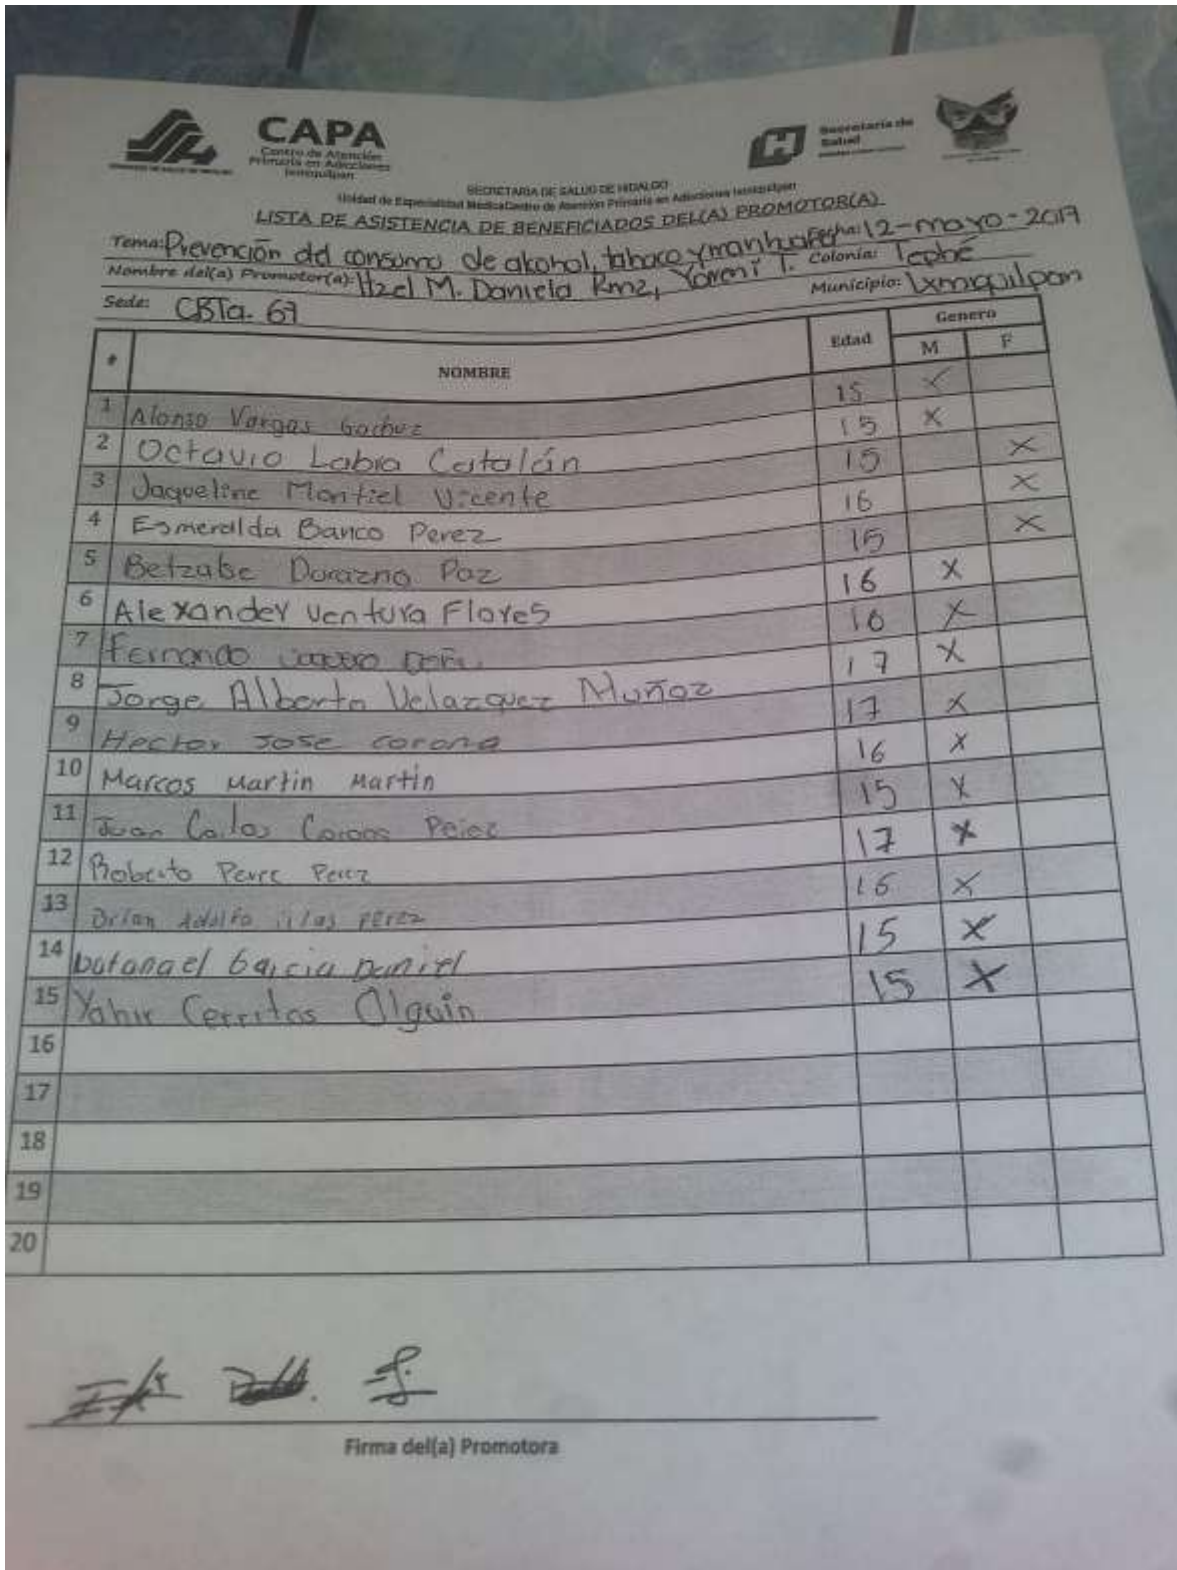 CAPA
Centro de Atención
Primaria en Adicciones
Ixmiquilpan
Secretaría de
Salud
SECRETARIA DE SALUD DE HIDALGO
Unidad de Especialidad MedicaCentro de Atención Primaria en Adicciones Ixmiquilpan
LISTA DE ASISTENCIA DE BENEFICIADOS DEL(A) PROMOTOR(A)
Tema: Prevención del consumo de alcohol, tabaco y marihuana Fecha: 12-mayo-2017
Nombre del(a) Promotor(a): Itzel M. Daniela Rmz, Yoreni T. Colonia: Tephé
Sede: CBTa. 67 Municipio: Ixmiquilpan
# NOMBRE Edad Genero
M F
1 Alonso Vargas 15 X
2 Octavio Labra Catalán 15 X
3 Jaqueline Montiel Vicente 15 X
4 Esmeralda Banco Perez 16 X
5 Betzabe Durazno Paz 15 X
6 Alexander Ventura Flores 16 X
7 Fernando 16 X
8 Jorge Alberto Velazquez Muñoz 17 X
9 Hector Jose Corona 17 X
10 Marcos Martin Martin 16 X
11 Juan Carlos Perez 15 X
12 Roberto Perez Perez 17 X
13 Brian Adolfo perez 16 X
14 Garcia Daniel 15 X
15 Yahir Cerritos Olguin 15 X
16
17
18
19
20
Firma del(a) Promotora